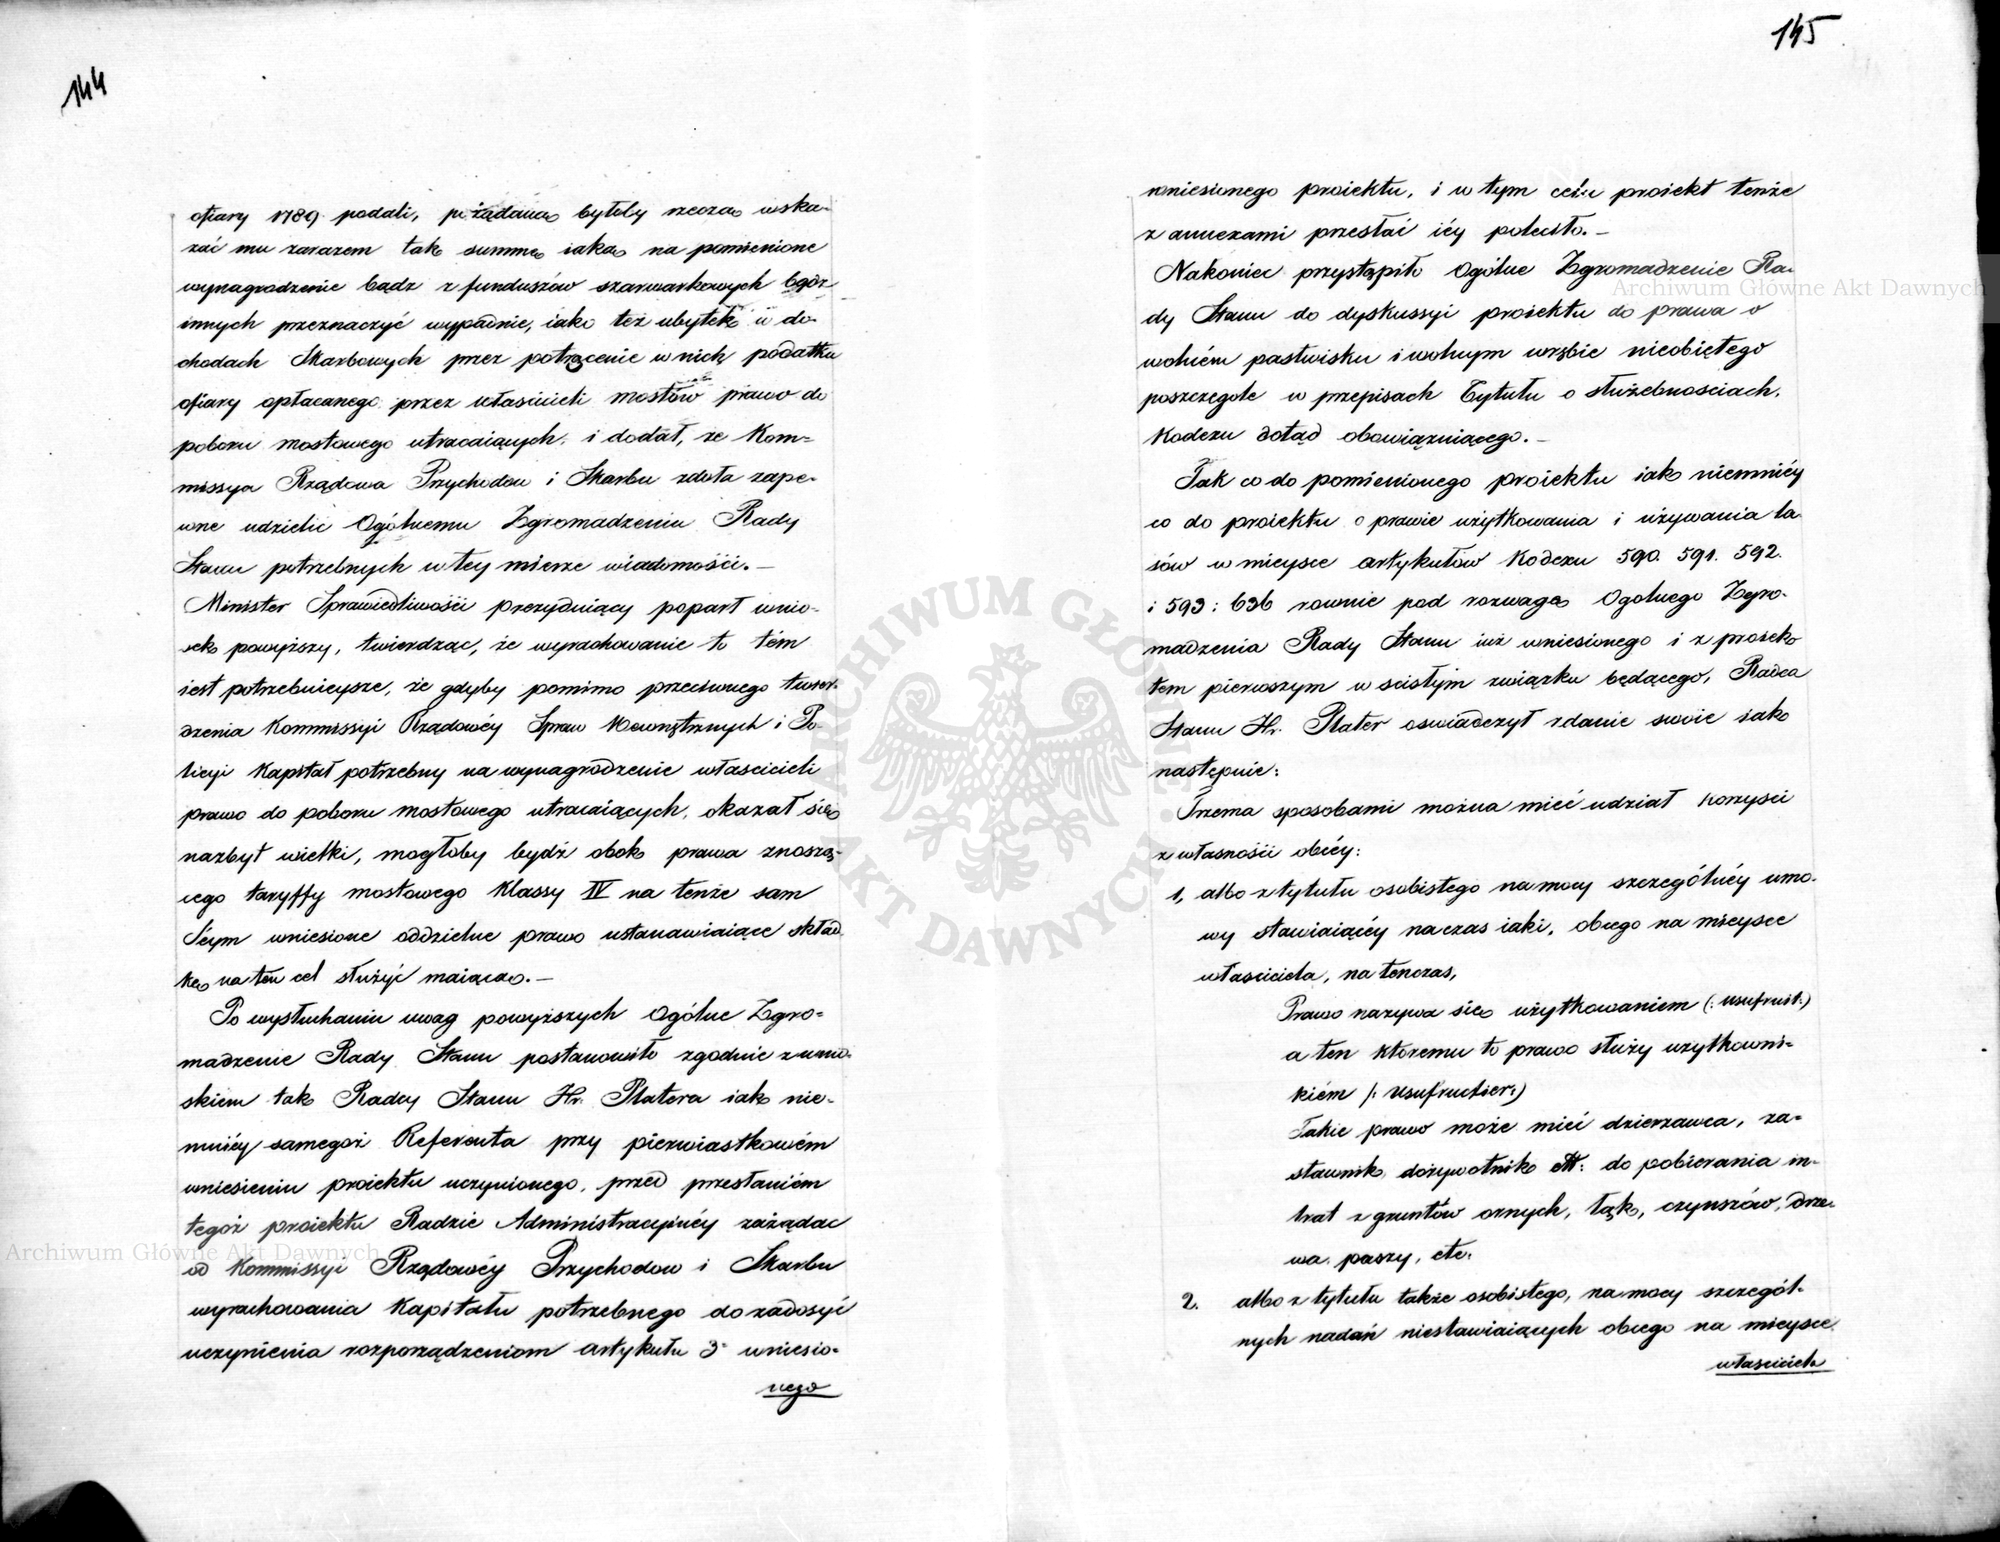 144
ofiary 1789 podali, pożądaną byłoby rzeczą wska-
zać mu zarazem tak summę iaką na pomienione
wynagrodzenie bądz z funduszów szarwarkowych bądz
innych przeznaczyć wypadnie, iako też ubytek w do-
chodach Skarbowych przez potrącenie w nich podatku
ofiary opłacanego przez właścicieli mostów prawo do
poboru mostowego utracaiących, i dodał, że Kom-
missya Rządowa Przychodow i Skarbu zdoła zape-
wne udzielić Ogólnemu Zgromadzeniu Rady
Stanu potrzebnych w tey mierze wiadomości.-
Minister Sprawiedliwości prezyduiący poparł wnio-
sek powyższy, twierdząc, że wyrachowanie to tém
iest potrzebnieysze, że gdyby pomimo przeciwnego twier-
dzenia Kommissyi Rządowéy Spraw Wewnętrznych i Po-
licyi Kapitał potrzebny na wynagrodzenie właścicieli
prawo do poboru mostowego utracaiących, okazał się
nazbyt wielki, mogłoby bydź obok prawa znoszą-
cego taryffy mostowego Klassy IV na tenże sam
Séym wniesione oddzielne prawo ustanawiaiące skład-
kę na ten cel służyć maiącą.-
Po wysłuchaniu uwag powyższych Ogólne Zgro-
madzenie Rady Stanu postanowiło zgodnie z wnio-
skiem tak Radcy Stanu Hr. Platera iako nie-
mniéy samegoż Referenta przy pierwiastkowém
wniesieniu proiektu uczynionego, przed przesłaniém
tegoż proiektu Radzie Administracyinéy zażądać
od Kommissyi Rządowéy Przychodow i Skarbu
wyrachowania Kapitału potrzebnego do zadosyć
uczynienia rozporządzeniom artykułu 3° wniesio-
nego
145
wniesionego proiektu, i w tym celu proiekt tenże
z annexami przesłać iéy poleciło.-
Nakoniec przystąpiło Ogólne Zgromadzenie Ra-
dy Stanu do dyskussyi proiektu do prawa o
wolném pastwisku i wolnym wrębie nieobiętego
poszczegole w przepisach Tytułu o służebnościach,
Kodexu dotąd obowiązuiącego.-
Tak co do pomienionego proiektu iako niemniéy
co do proiektu o prawie użytkowania i używania la-
sów w mieysce artykułów Kodexu 590. 591. 592.
i 593: 636 rownie pod rozwagę Ogolnego Zgro-
madzenia Rady Stanu iuż wniesionego i z proiek-
tem pierwszym w scisłym związku będącego, Radca
Stanu Hr. Plater oswiadczył zdanie swoie iako
następnie:
Trzema sposobami można mieć udział korzyści
z własności obcéy:
1, albo z tytułu osobistego na mocy szczególnéy umo-
wy stawiaiącéy na czas iaki, obcego na mieysce
właściciela, na tenczas,
Prawo nazywa się użytkowaniem (: usufruit:)
a ten któremu to prawo służy uzytkowni-
kiém /: usufructier:)
Takie prawo może mieć dzierzawca, za-
stawnik, dożywotnik ett: do pobierania in-
trat z gruntów ornych, łąk, czynszów, drze-
wa, paszy, etc.
2. albo z tytułu także osobistego, na mocy szczegól-
nych nadań niestawiaiących obcego na mieysce
właściciela
Archiwum Główne Akt Dawnych
Archiwum Główne Akt Dawnych
ARCHIWUM GŁÓWNE AKT DAWNYCH